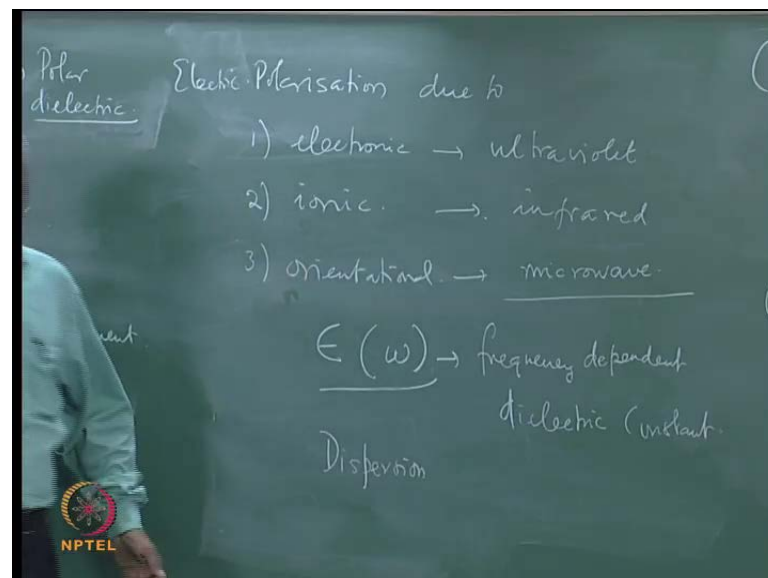 Polar
dielectric.
Electric Polarisation due to
1) electronic → ultraviolet
2) ionic. → infrared
3) orientational → microwave.
ϵ (ω) → frequency dependent
dielectric Constant.
Dispersion
NPTEL